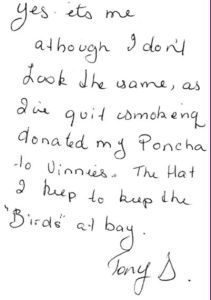 yes. its me
although I don't
Look the same, as
I've quit smoking
donated my Poncha
to Vinnies. The Hat
I keep to keep the
"Birds" at bay.
Tony S.